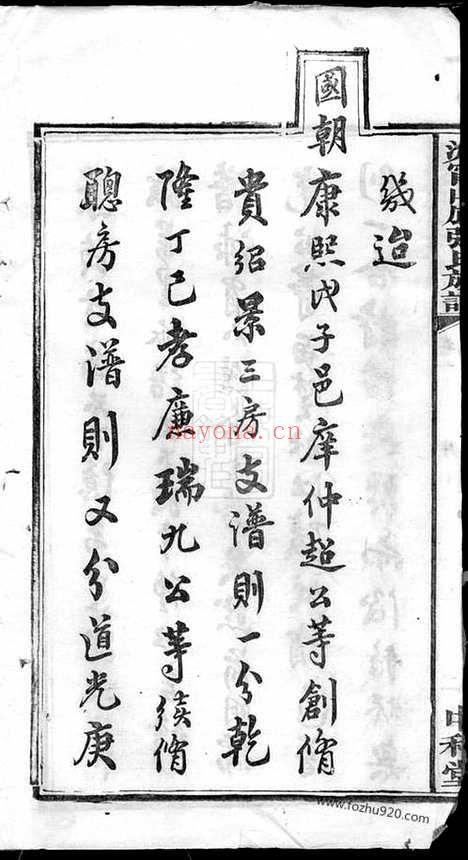 幾迨
國朝康熙戊子邑庠仲超公等創脩
貴紹景三房支譜則一分乾
隆丁巳孝廉瑞九公等續脩
聰房支譜則又分道光庚
張氏族譜
中和堂
nayona.cn
www.fozhu920.com